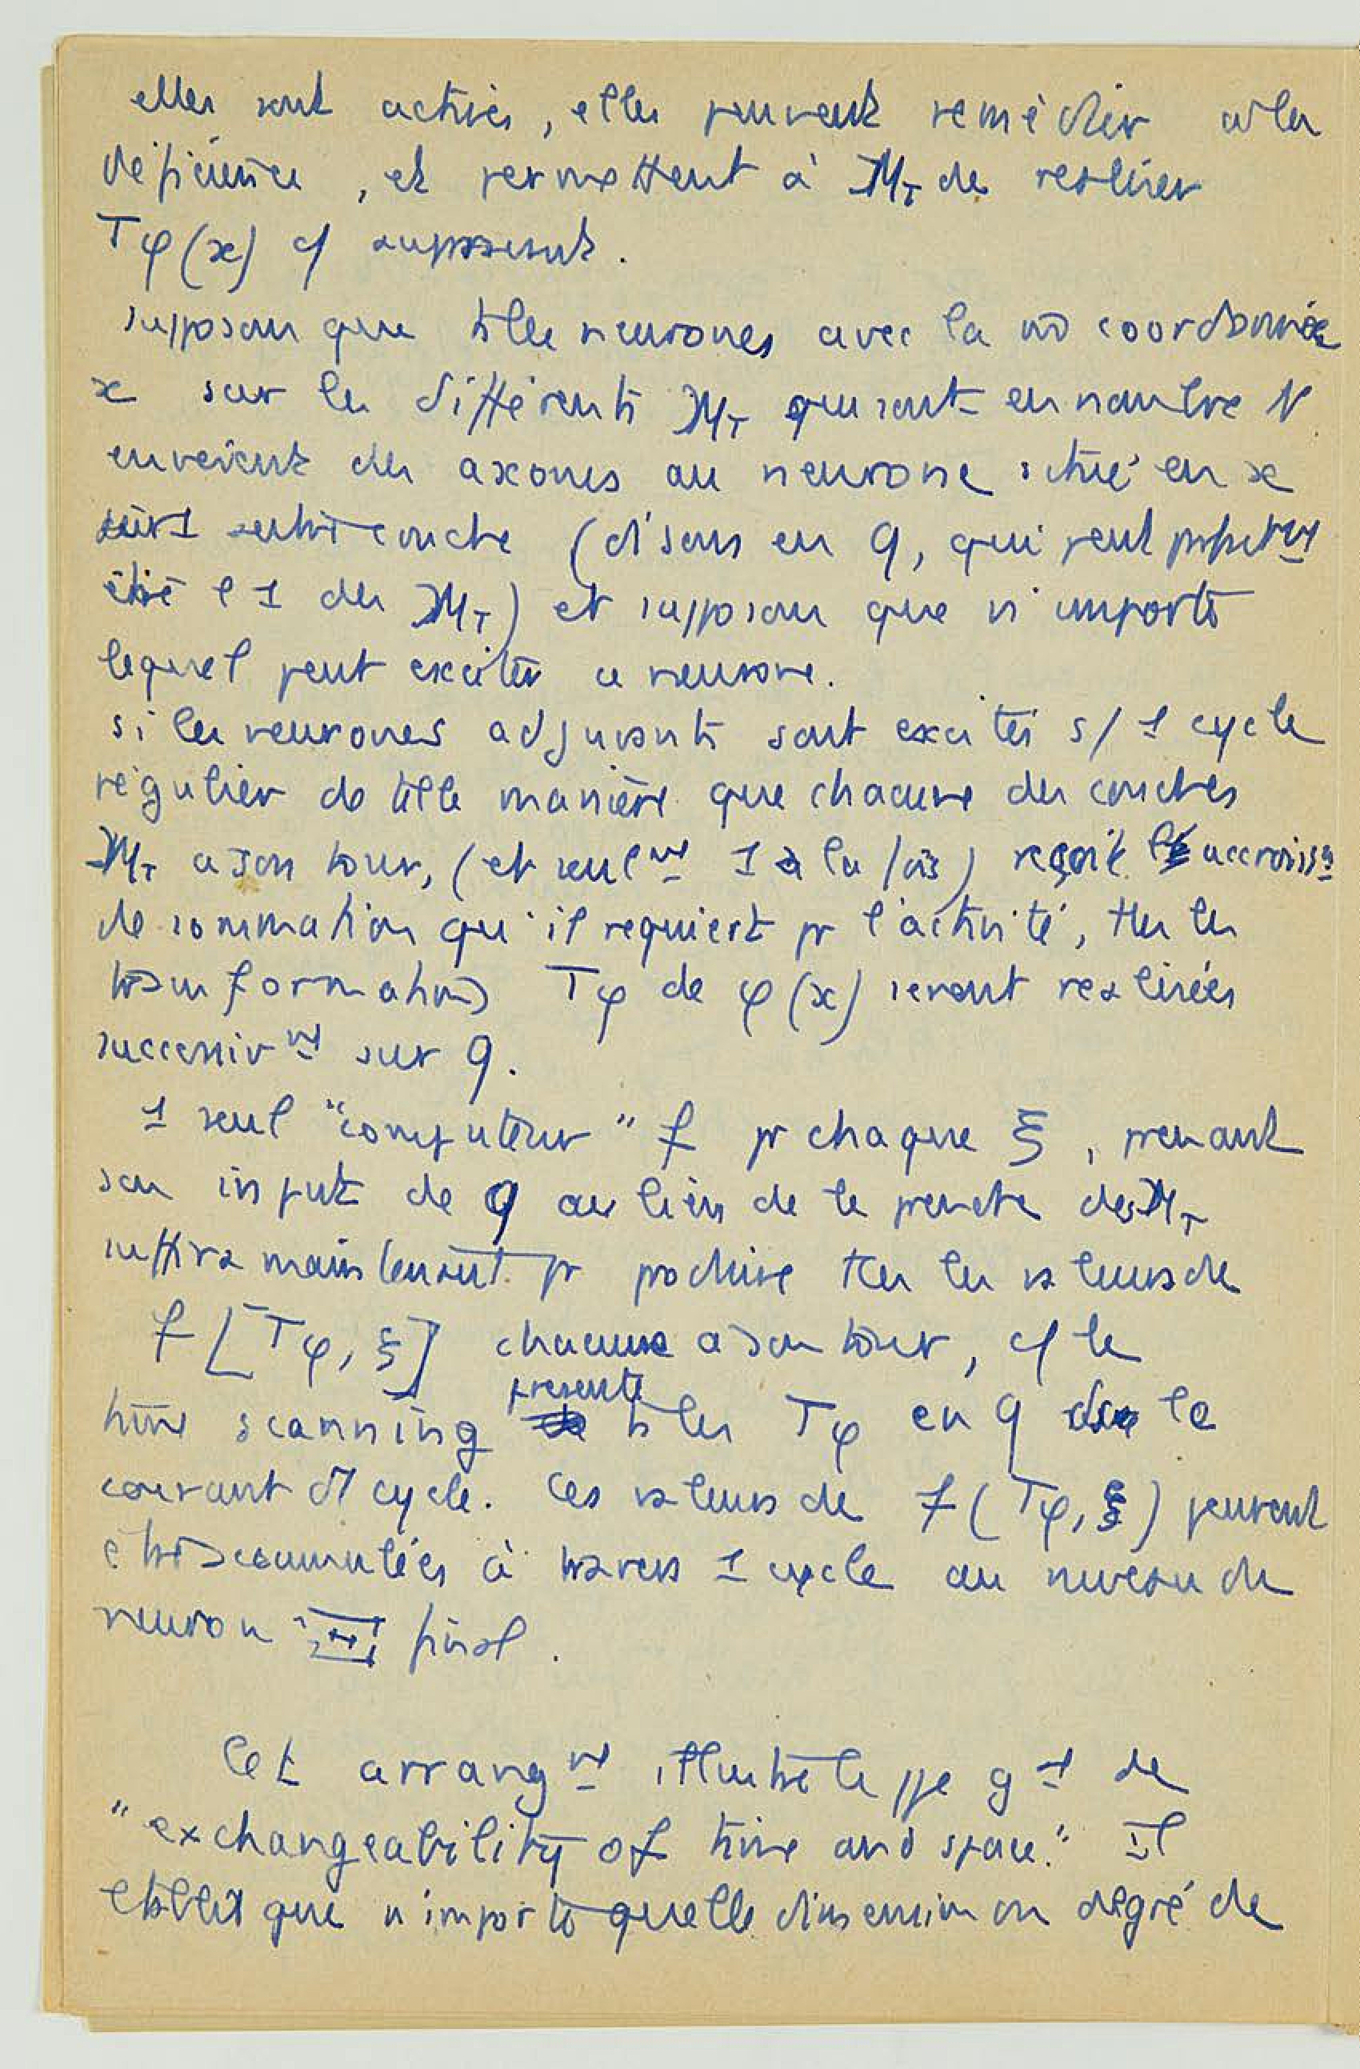 elles sont actives, elles peuvent remédier à la
déficience, et permettent à M_T de réaliser
Tφ(x) cf auparavant.
supposons que ts les neurones avec la m̄ coordonnée
x sur les différents M_T qui sont en nombre N
envoient des axones au neurone situé en x
sur 1 autre couche (disons en Q, qui peut
être l'1 des M_T) et supposons que n'importe
lequel peut exciter ce neurone.
si les neurones adjuvants sont excités s/ 1 cycle
régulier de telle manière que chacune des couches
M_T a son tour, (et seulᵐᵗ 1 à la fois) reçoit l'accroissᵗ
de sommation qu'il requiert pr l'activité, ttes les
transformations Tφ de φ(x) seront réalisées
successivᵐᵗ sur Q.
1 seul "computeur" f pr chaque ξ, prenant
son input de Q au lieu de le prendre des M_T
suffira maintenant pr produire ttes les valeurs de
f[Tφ, ξ] chacune a son tour, cf le
time scanning présente ts les Tφ en Q ds le
courant d'1 cycle. Ces valeurs de f(Tφ, ξ) peuvent
être accumulées à travers 1 cycle au niveau du
neurone Ξ final.
Cet arrangᵐᵗ illustre le ppe gᵃˡ de
"exchangeability of time and space." Il
établit que n'importe quelle dimension ou degré de